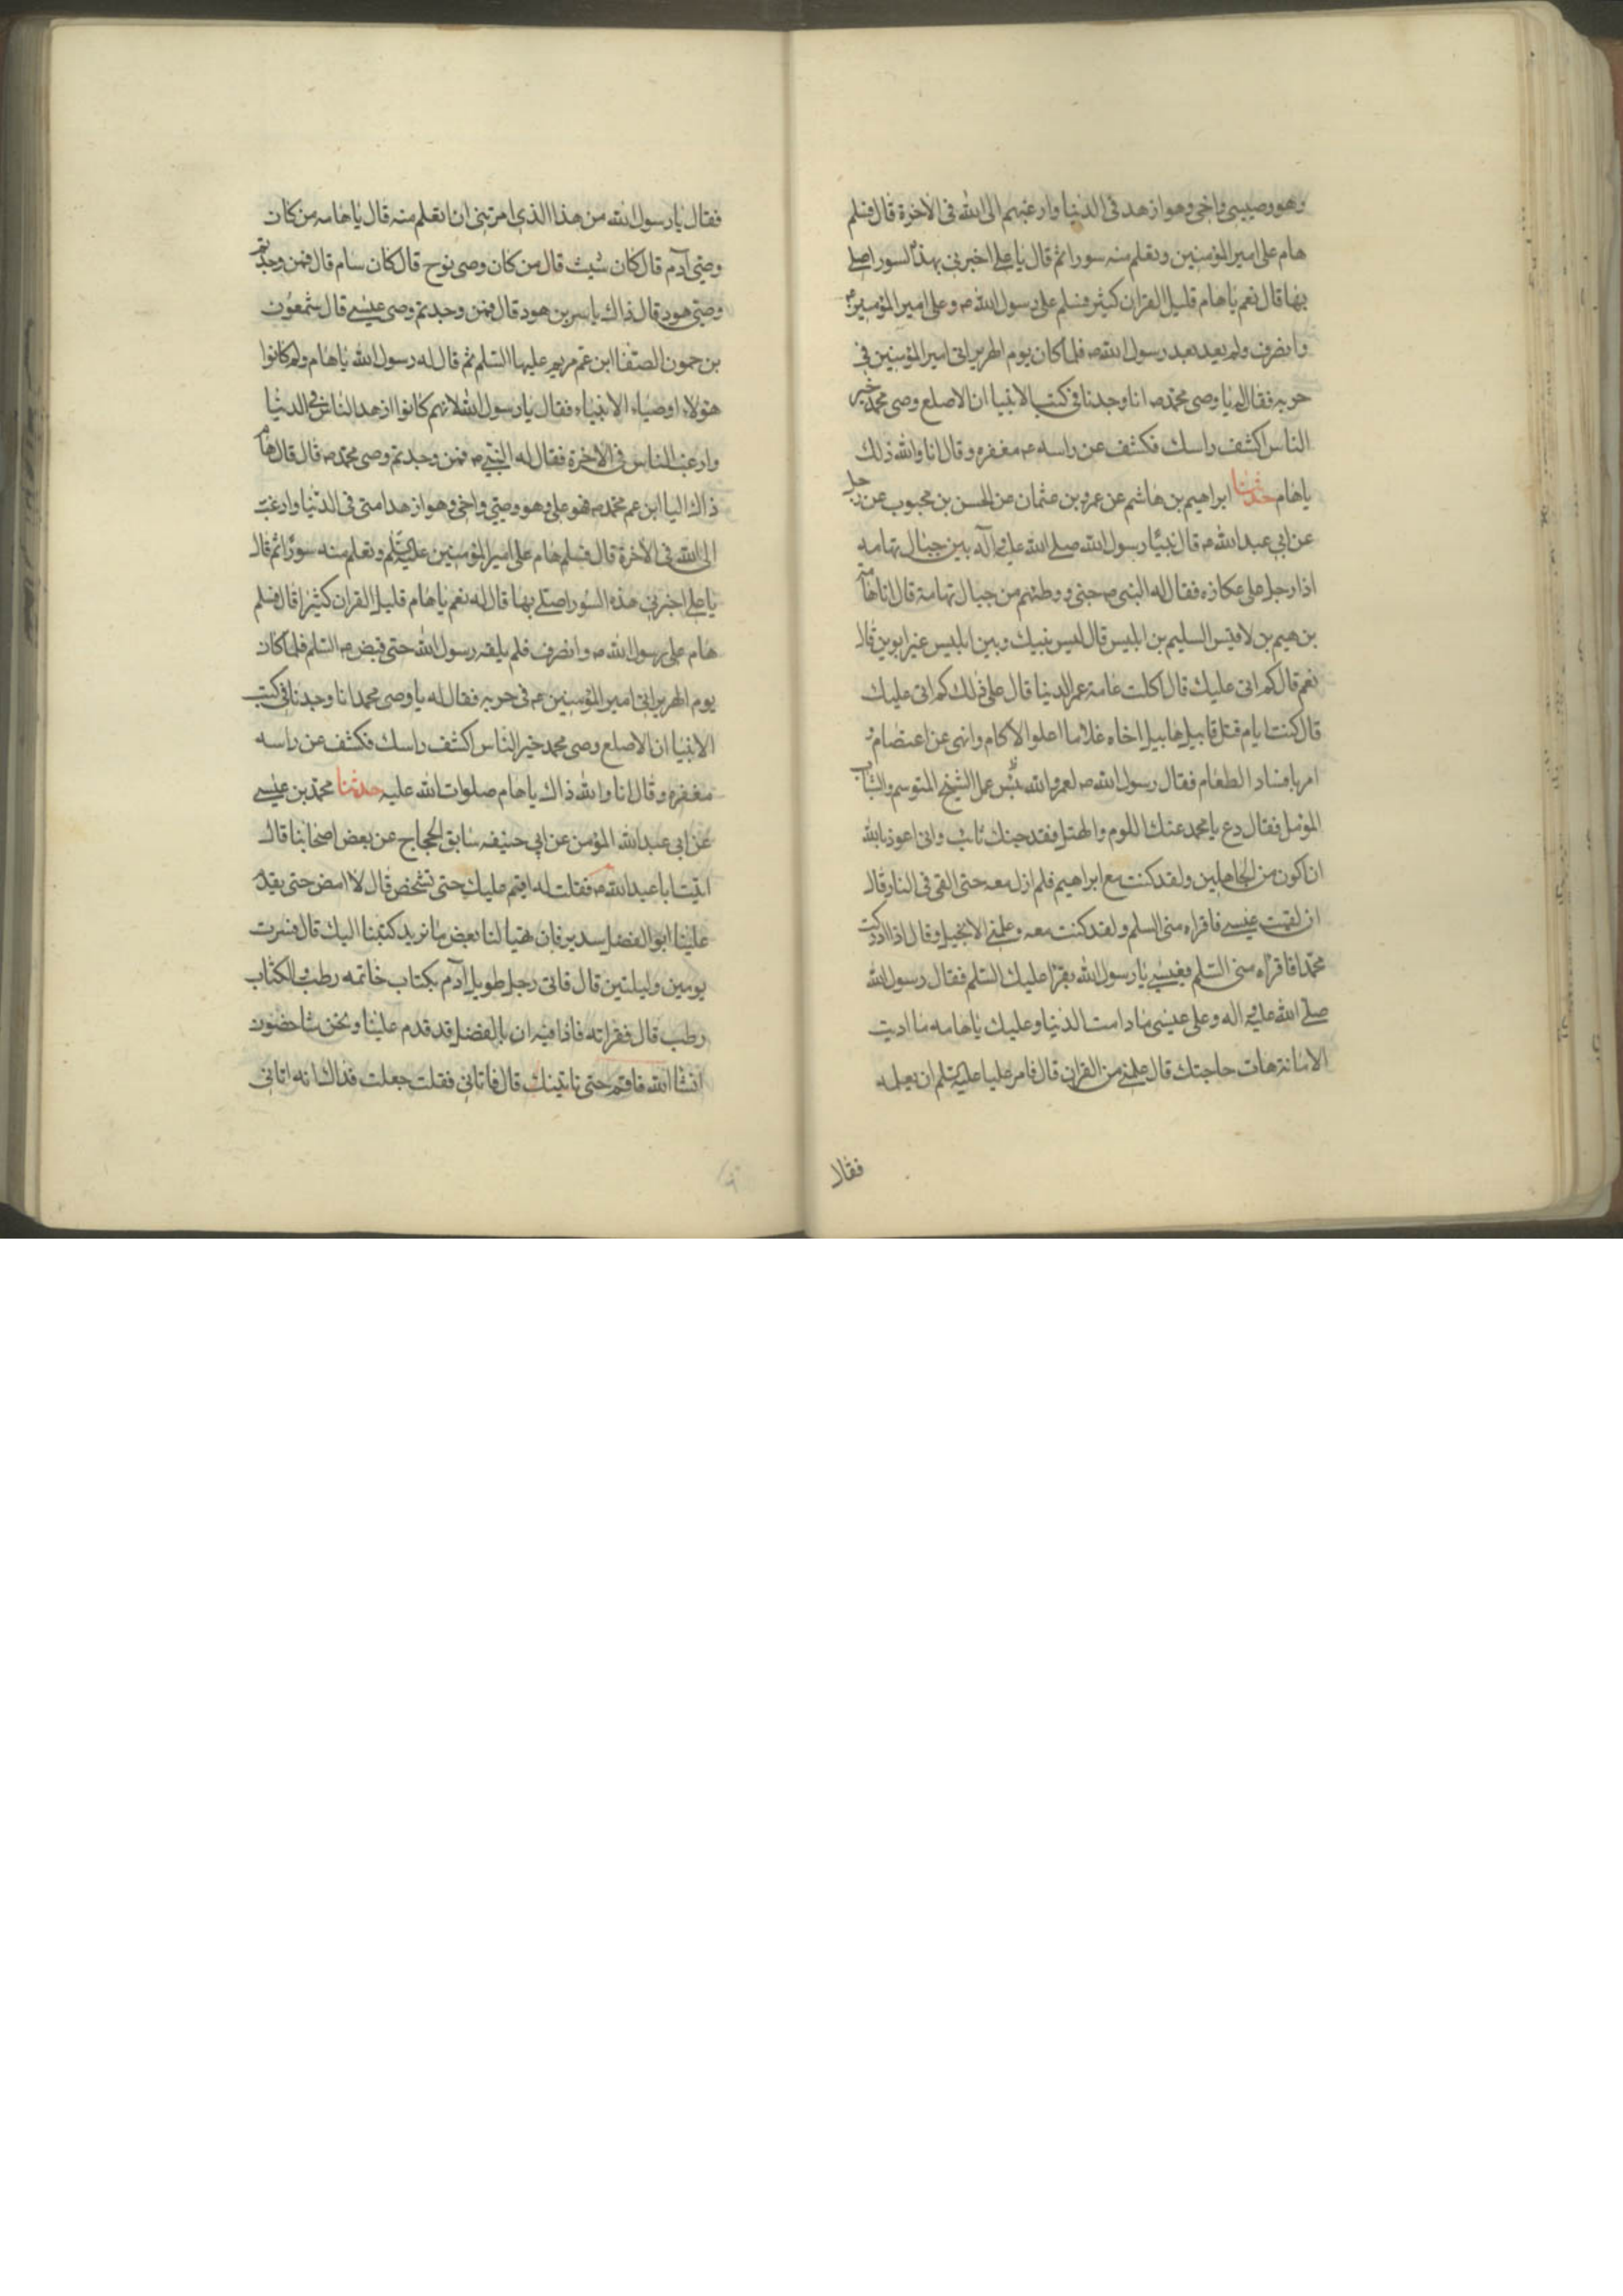 وهو وصيي واخي وهو ازهد في الدنيا وارغبهم الى الله في الاخرة قال فسلم
هام على امير المؤمنين وتعلم منه سورا ثم قال يا علي اخبرني بهذه السور اصلي
بها قال نعم يا هام قليل القران كثير فسلم على رسول الله ص وعلى امير المؤمنين ع
وانصرف ولم يعد بعد رسول الله ص فلما كان يوم الهرير اتى امير المؤمنين في
حربه فقال له يا وصي محمد ص انا وجدنا في كتب الانبيا ان الاصلع وصي محمد خير
الناس اكشف راسك فكشف عن راسه ع مغفره وقال انا والله ذلك
ياهام حدثنا ابراهيم بن هاشم عن عمرو بن عثمان عن الحسن بن محبوب عن رجل
عن ابي عبد الله ع قال بينا رسول الله صلى الله عليه وآله بين جبال تهامه
اذا رجل على عكازه فقال له النبي ص جني ووطئتهم من جبال تهامة قال انا هام
بن هيم بن لاقيس السليم بن ابليس قال ليس بينك وبين ابليس غير ابوين قال
نعم قال كم اتى عليك قال اكلت عامة عمر الدنيا قال على ذلك كم اتى عليك
قال كنت ايام قتل قابيل هابيل اخاه غلاما اعلو الاكام وانهى عن اعتصام و
امر بافساد الطعام فقال رسول الله ص لعمرو الله بئس عمل الشيخ المتوسم والشاب
المؤمل فقال دع يا محمد عنك اللوم والهتل فقد جئتك تائب واني اعوذ بالله
ان اكون من الجاهلين ولقد كنت مع ابراهيم فلم ازل معه حتى القي في النار قال
ان لقيت عيسى فاقراه مني السلم ولقد كنت معه وعلمني الانجيل وقال اذا ادركت
محمدا فاقراه مني السلم فعيسى يا رسول الله يقرا عليك السلم فقال رسول الله
صلى الله عليه واله وعلى عيسى ما دامت الدنيا وعليك ياهامه ما اديت
الامانة هات حاجتك قال علمني من القران قال فامر عليا عليه السلم ان يعلمه
فقال
فقال يا رسول الله من هذا الذي امرتني ان اتعلم منه قال يا هامه من كان
وصي آدم قال كان شيث قال من كان وصي نوح قال كان سام قال فمن وجدتم
وصي هود قال ذاك ياسر بن هود قال فمن وجدتم وصي عيسى قال شمعون
بن حمون الصفا ابن عم مريم عليها السلم ثم قال له رسول الله ياهام ولم كانوا
هؤلاء اوصياء الانبياء فقال يا رسول الله لانهم كانوا ازهد الناس في الدنيا
وارغب الناس في الاخرة فقال له النبي ص فمن وجدتم وصي محمد ص قال قال هام
ذاك اليا ابن عم محمد ص فهو علي وهو وصيي واخي وهو ازهد امتي في الدنيا وارغب
الى الله في الاخرة قال فسلم هام على امير المؤمنين عليه السلم وتعلم منه سورا ثم قال
يا علي اخبرني هذه السور اصلي بها قال له نعم ياهام قليل القران كثيرا قال فسلم
هام على رسول الله ص وانصرف فلم يلقه رسول الله حتى قبض ع السلم فلما كان
يوم الهرير اتى امير المؤمنين ع في حربه فقال له يا وصي محمد انا وجدنا في كتب
الانبيا ان الاصلع وصي محمد خير الناس اكشف راسك فكشف عن راسه
مغفره وقال انا والله ذاك ياهام صلوات الله عليه حدثنا محمد بن عيسى
عن ابي عبد الله المؤمن عن ابي حنيفه سابق الحجاج عن بعض اصحابنا قال
اتيت ابا عبد الله ع فقلت له اقيم عليك حتى تشخص قال لا امض حتى يقدم
علينا ابو الفضل سدير فان تهيا لنا بعض ما نريد كتبنا اليك قال فسرت
يومين وليلتين قال فاتى رجل طويل آدم بكتاب خاتمه رطب والكتاب
رطب قال فقراته فاذا فيه ان بالفضل قد قدم علينا ونحن شاخصون
انشا الله فاقم حتى ناتينك قال فاتاني فقلت جعلت فداك انه اتاني